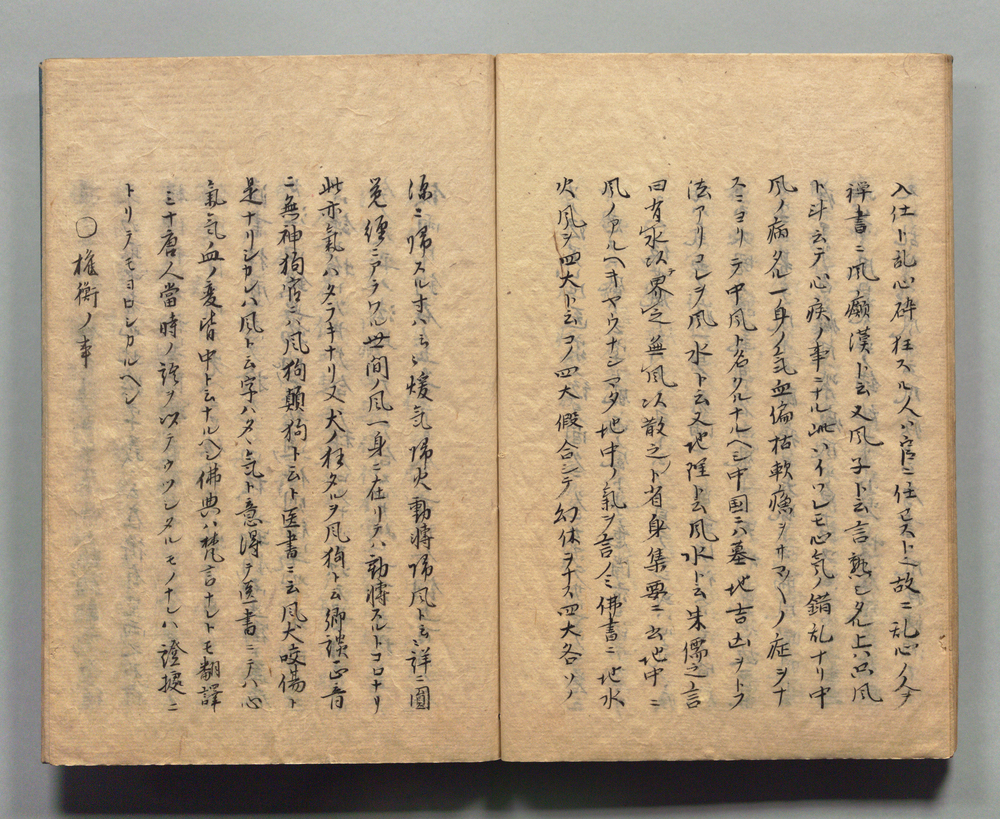 入仕ト乱心砕狂スル人ハ官ニ任セスト也故ニ乱心ノ人ヲ
禅書ニ風癲漢ト云又風子ト云言熟シタル上ハ只風
ト斗云テ心疾ノ事ニナル此ハイツレモ心気ノ錯乱ナリ中
風ノ病タル一身ノ气血偏枯軟瘓シサマ〱ノ症ヲナ
スニヨリテ中風ト名クルナルヘシ中国ニハ墓地吉凶ヲトフ
法アリコレヲ風水ト云又地理ト云風水ト云朱儒之言
曰有水以界之無風以散之ト省身集要ニ云地中ニ
風ノアルヘキヤウナシマタ地中ノ氣ヲ言ノミ佛書ニ地水
火風ヲ四大ト云コノ四大假合シテ幻体ヲナス四大各ソノ
源ニ帰スル寸ハ云〻煖气帰火動轉帰風ト云〻詳ニ圓
覚經ニアラワル世間ノ風一身ニ在リテハ動轉スルトコロナリ
此亦氣ノハタラキナリ又犬ノ狂タルヲ風狗ト云郷談正音
ニ無神狗官ニハ風狗顛狗ト云ト医書ニ云風犬咬傷ト
是ナリシカレハ風ト云字ハタヽ气ト意得テ医書ニテハ心
氣气血ノ変皆中ト云ナルヘシ佛典ハ梵言ナレトモ翻譯
ミナ唐人當時ノ語ヲ以テウツシタルモノナレハ證據ニ
トリテモヨロシカルヘシ
○権衡ノ事